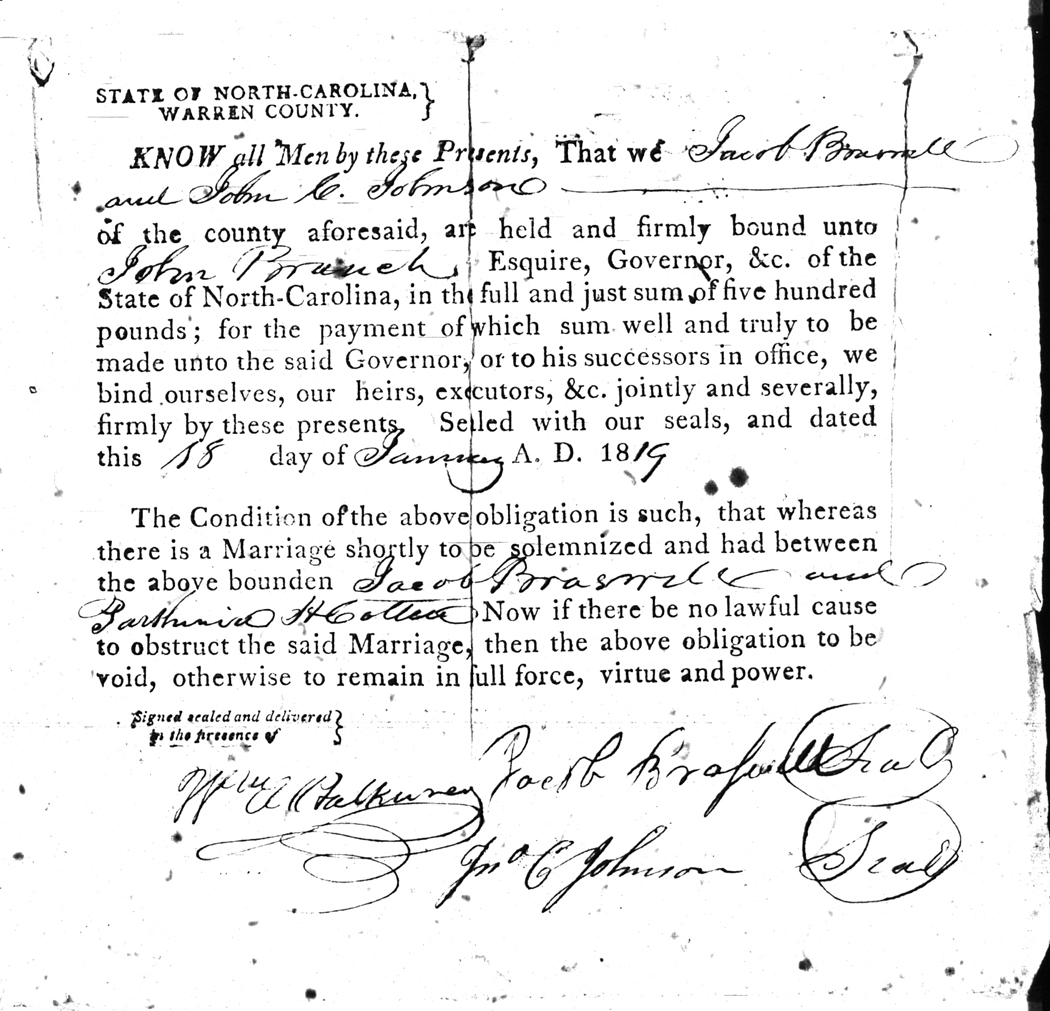 STATE OF NORTH-CAROLINA,
WARREN COUNTY.
KNOW all Men by these Presents, That we Jacob Braswell
and John C. Johnson
of the county aforesaid, are held and firmly bound unto
John Branch, Esquire, Governor, &c. of the
State of North-Carolina, in the full and just sum of five hundred
pounds; for the payment of which sum well and truly to be
made unto the said Governor, or to his successors in office, we
bind ourselves, our heirs, executors, &c. jointly and severally,
firmly by these presents. Sealed with our seals, and dated
this 18 day of January A. D. 1819
The Condition of the above obligation is such, that whereas
there is a Marriage shortly to be solemnized and had between
the above bounden Jacob Braswell and
H Cotten Now if there be no lawful cause
to obstruct the said Marriage, then the above obligation to be
void, otherwise to remain in full force, virtue and power.
Signed sealed and delivered
in the presence of
Jacob Braswell Seal
Wm A K Falkener
Jno C Johnson Seal